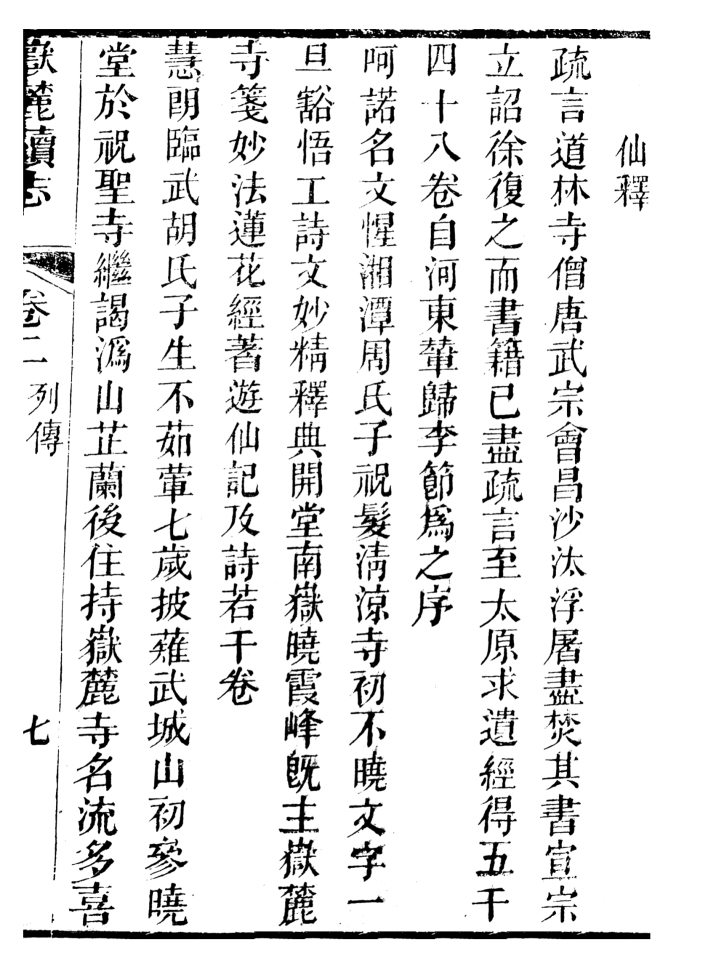 仙釋
疏言道林寺僧唐武宗會昌沙汰浮屠盡焚其書宣宗
立詔徐復之而書籍已盡疏言至太原求遺經得五千
四十八卷自河東輦歸李節爲之序
呵諾名文惺湘潭周氏子祝髮清涼寺初不曉文字一
旦豁悟工詩文妙精釋典開堂南嶽曉霞峰既主嶽麓
寺箋妙法蓮花經著遊仙記及詩若干卷
慧朗臨武胡氏子生不茹葷七歲披薙武城山初參曉
堂於祝聖寺繼謁溈山芷蘭後住持嶽麓寺名流多喜
嶽麓續志 卷二 列傳 七